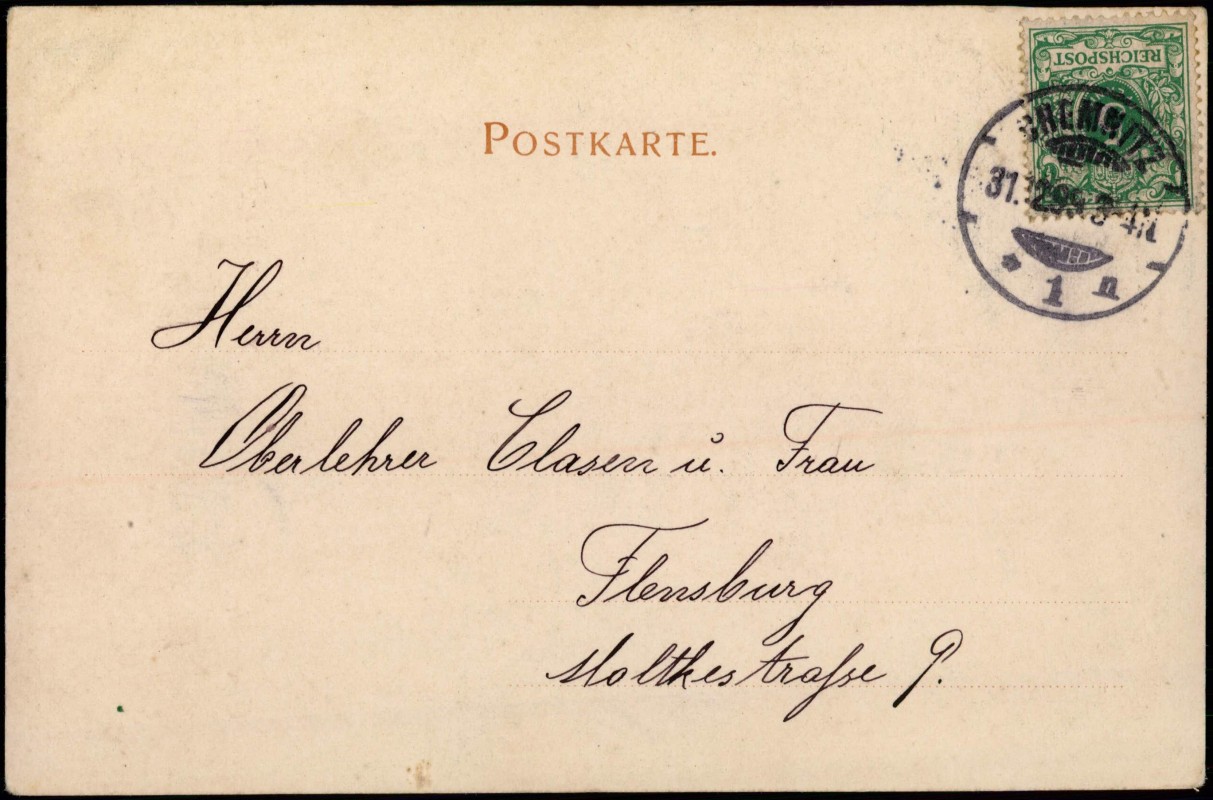 REICHSPOST
POSTKARTE.
CHEMNITZ
31.12.99. 3-4N
* 1 n
Herrn
Oberlehrer Clasen u. Frau
Flensburg
Moltkestraſse 9.